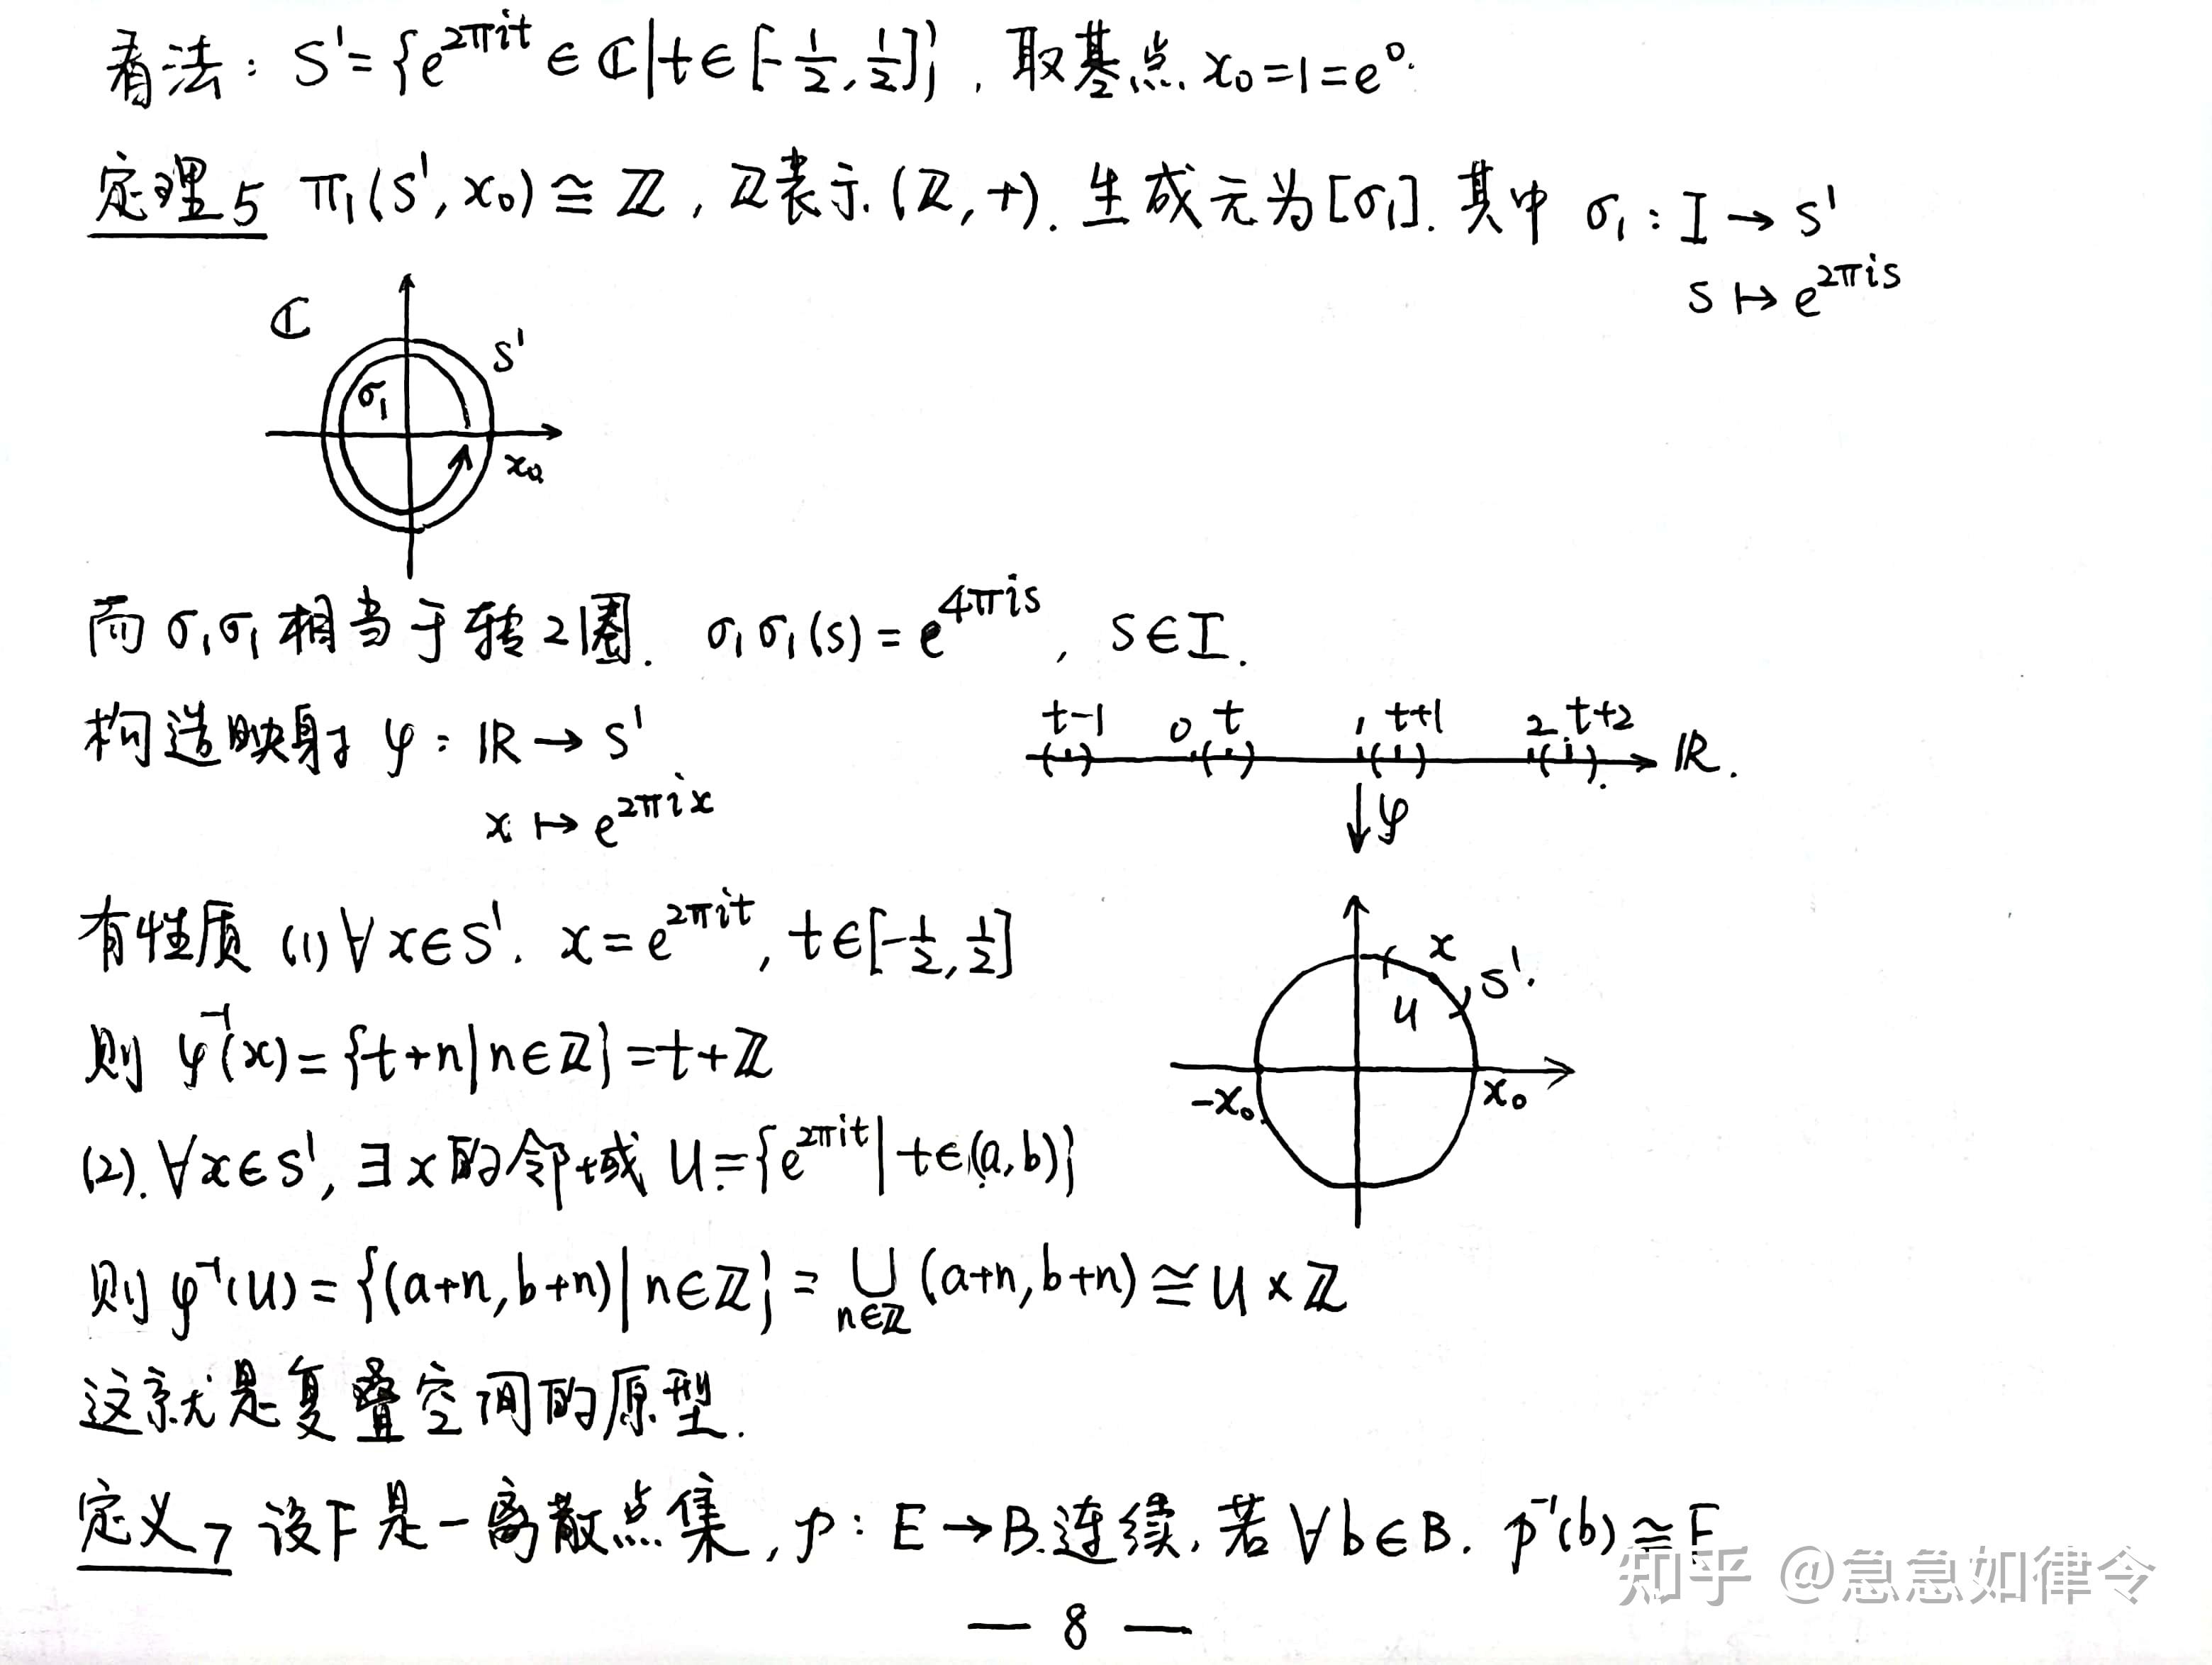 看法：S¹={e^{2πit}∈ℂ|t∈[-1/2,1/2]}，取基点 x₀=1=e⁰.
定理5 π₁(S¹,x₀)≅ℤ，ℤ表示(ℤ,+). 生成元为[σ₁]. 其中 σ₁：I→S¹
s↦e^{2πis}
ℂ
S¹
σ₁
x₀
而σ₁σ₁相当于转2圈. σ₁σ₁(s)=e^{4πis}，s∈I.
构造映射 φ：ℝ→S¹
x↦e^{2πix}
t-1 0 t 1 t+1 2 t+2 ℝ.
φ
有性质 (1)∀x∈S¹. x=e^{2πit}, t∈[-1/2,1/2]
x
S¹.
U
则 φ⁻¹(x)={t+n|n∈ℤ}=t+ℤ
-x₀ x₀
(2). ∀x∈S¹, ∃x的邻域 U={e^{2πit}|t∈(a,b)}
则 φ⁻¹(U)={(a+n,b+n)|n∈ℤ}=⋃_{n∈ℤ}(a+n,b+n)≅U×ℤ
这就是复叠空间的原型.
定义7 设F是一离散点集，p：E→B连续，若∀b∈B. p⁻¹(b)≅F
知乎 @急急如律令
— 8 —